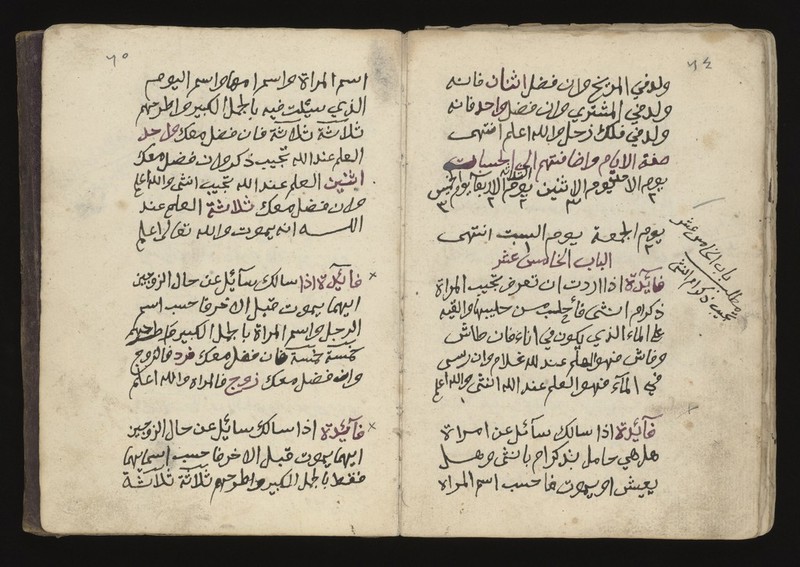 ٦٤
ولد في المريخ وان فضل اثنان فانه
ولد في المشتري وان فضل واحد فانه
ولد في فلك زحل والله اعلم انتهى
صفة الايام واضافتهم الى الحساب
يوم الاحد يوم الاثنين يوم الثلاثة يوم الاربعا يوم الخميس
يوم الجمعة يوم السبت انتهى
الباب الخامس عشر
فآئدة اذا اردت ان تعرف تجيب المراة
ذكر ام انثى فاحلب من حليبها والقيه
على المآء الذي يكون في اناء فان طاش
وفاش فهو العلم عند الله غلام وان رسى
في المآء فهو العلم عند الله انثى والله اعلم
فآئدة اذا سالك سآئل عن امراة
هل هي حامل بذكر ام بانثى وهل
يعيش او يموت فاحسب اسم المراه
مطلب باب الخامس عشر
تجيب ذكر ام انثى
٦٥
اسم المراة واسم امها واسم اليوم
الذي سئلت فيه بالجمل الكبير واطرحهم
ثلاثة ثلاثة فان فضل معك واحد
العلم عند الله تجيب ذكر وان فضل معك
اثنين العلم عند الله تجيب انثى والله اعلم
وان فضل معك ثلاثة العلم عند
الله انه يموت والله تعالى اعلم
فآئدة اذا سالك سآئل عن حال الزوجين
ايهما يموت قبل الاخر فاحسب اسم
الرجل واسم المراة بالجمل الكبير واطرحهم
خمسة خمسة فان فضل معك فرد فالزوج
وان فضل معك زوج فالمراة والله اعلم
فآئدة اذا سالك سايل عن حال الزوجين
ايهما يموت قبل الاخر فاحسب اسمايهما
فقط بالجمل الكبير واطرحهم ثلاثة ثلاثة